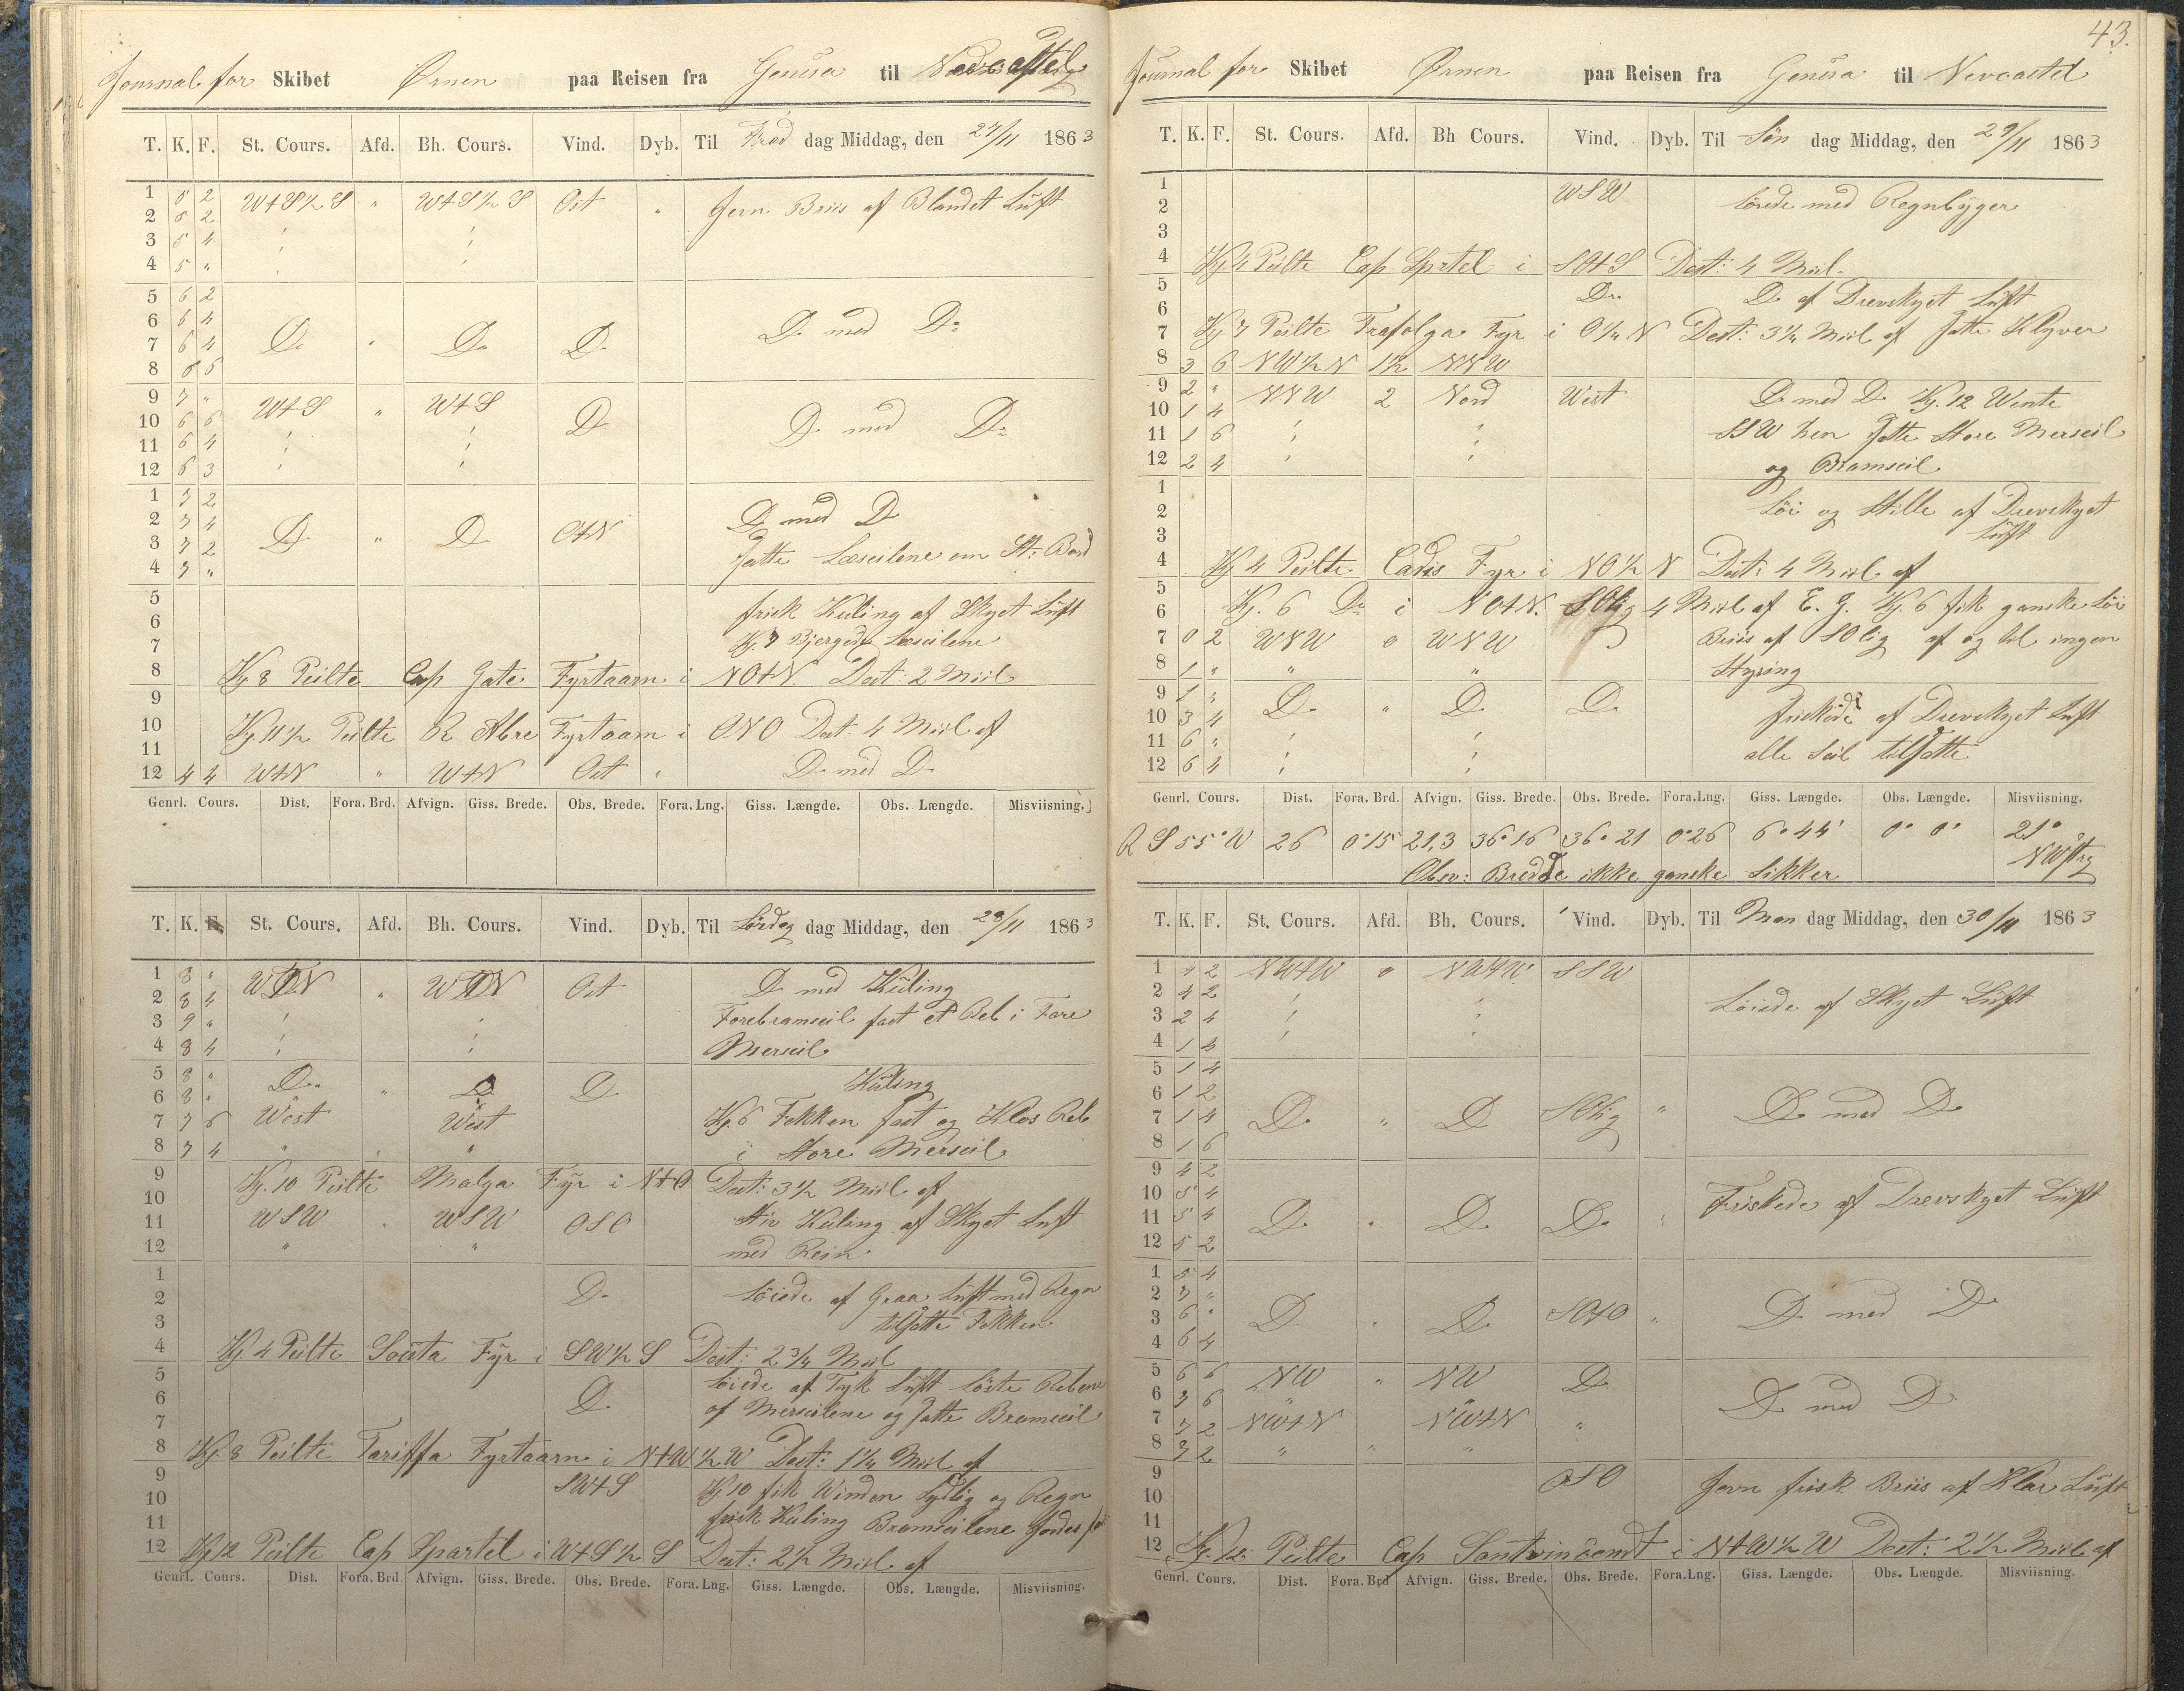 Journal for Skibet Ørnen paa Reisen fra Genua til
T. K. F. St. Cours. Afd. Bh. Cours. Vind. Dyb. Til Fredag Middag, den 27/11 1863
1 6 2 W+S½S " W+S½S Ost " Jevn Briis af Blandet Luft
2 6 2
3 5 4
4 5 "
5 6 2
6 6 4 Do " Do Do Do med Do
7 6 4
8 6 6
9 7 " W+S " W+S Do Do med Do
10 6 6
11 6 4
12 6 3
1 7 2
2 7 4 Do " Do O+N Do med Do
3 7 2 Satte Læseilene om St: Bord
4 7 "
5 frisk Kuling af Skyet Luft
6
7 Kl. 7 Bjergede Læseilene
8 Kl 8 Peilte Cap Gate Fyrtaarn i NO+N. Dist: 2 Miil
9
10 Kl. 11½ Peilte R Abre Fyrtaarn i ONO Dist: 4 Miil af
11
12 4 4 W+N " W+N Ost " Do med Do
Genrl. Cours. Dist. Fora. Brd. Afvign. Giss. Brede. Obs. Brede. Fora. Lng. Giss. Længde. Obs. Længde. Misviisning.
T. K. F. St. Cours. Afd. Bh. Cours. Vind. Dyb. Til Lördag dag Middag, den 28/11 1863
1 8 " W+N " W+N Ost Do med Kuling
2 8 4 Forebramseil fast et Reb i Fore
3 9 "
4 8 4 Merseil
5 8 " Do " Do Do Kuling
6 8 "
7 7 6 West West Kl. 6 Fokken fast og Klos Reb
8 7 4 " " " i Store Merseil
9 Kl. 10 Peilte Malga Fyr i N+O Dist: 3½ Miil af
10
11 WSW " WSW OSO Stiv Kuling af Skyet Luft
12 " " med Rein
1 Do Löiede af Graa Luft med Regn
2 tilsatte Fokken
3
4 Kl. 4 Peilte Souta Fyr i SW½S Dist: 2¾ Miil
5 Löiede af Tyk Luft löste Rebene
6 Do af Merseilene og satte Bramseil
7
8 Kl. 8 Peilte Tariffa Fyrtaarn i N+W½W Dist: 1¼ Miil af
9 SW+S Kl 10 fik Winden Sydlig og Regn
10
11 frisk Kuling Bramseilene
12 Kl 12 Peilte Cap Spartel i W+S½S Dist: 2½ Miil af
Genrl. Cours. Dist. Fora. Brd. Afvign. Giss. Brede. Obs. Brede. Fora. Lng. Giss. Længde. Obs. Længde. Misviisning.
43.
Journal for Skibet Ørnen paa Reisen fra Genua til Nevcastel
T. K. F. St. Cours. Afd. Bh Cours. Vind. Dyb. Til Søn dag Middag, den 29/11 1863
1 WSW Löiede med Regnbyger
2
3
4 Kl 4 Peilte Cap Sprtel i SO+S Dist: 4 Miil
5 Do Do af Drevskyet Luft
6
7 Kl 7 Peilte Trafolga Fyr i O¼N Dist: 3¼ Miil af Satte Klyver
8 3 6 NW½N 1½ NNW
9 2 " NNW 2 Nord West Do med Do Kl. 12 Wente
10 1 4
11 1 6 SSW hen Satte Store Merseil
12 2 4 og Bramseil
1
2 Löi og Stille af Drevskyet
3 Luft
4 Kl 4 Peilte Cadis Fyr i NO½N Dist: 4 Miil af
5
6 Kl. 6 Do i NO+N. SOlig 4 Miil af E. G. Kl. 6 fik ganske Löi
7 0 2 WNW 0 WNW Briis af SOlig af og til ingen
8 1 " " " Styring
9 1 " Do " Do Do friskede af Drevskyet Luft
10 3 4
11 6 " alle Seil tilsatte
12 6 4
Genrl. Cours. Dist. Fora. Brd. Afvign. Giss. Brede. Obs. Brede. Fora. Lng. Giss. Længde. Obs. Længde. Misviisning.
R S 55° W 26 0°15 21,3 36°16 36°21 0°26 6°44' 0° 0' 21°
NWstlig
Obsv: Bredde ikke ganske Sikker
T. K. F. St. Cours. Afd. Bh. Cours. Vind. Dyb. Til Man dag Middag, den 30/11 1863
1 4 2 NW+W 0 NW+W SSW
2 4 2 Löiede af Skyet Luft
3 2 4
4 1 4
5 1 4
6 1 2
7 1 4 Do " Do SOlig " Do med Do
8 1 6
9 4 2
10 5 4 Friskede af Drevskyet Luft
11 5 4 Do " Do Do "
12 5 2
1 5 4
2 7 "
3 6 " Do " Do SO+O " Do med Do
4 6 4
5 6 6 NW " NW Do
6 7 6 " " Do med Do
7 7 2 NW+N NW+N "
8 7 2 " " "
9 OSO Jevn frisk Briis af Klar Luft
10
11
12 Kl. 12 Peilte Cap i N+W½W Dist: 2½ Miil af
Genrl. Cours. Dist. Fora. Brd Afvign. Giss. Brede. Obs. Brede. Fora. Lng. Giss. Længde. Obs. Længde. Misviisning.